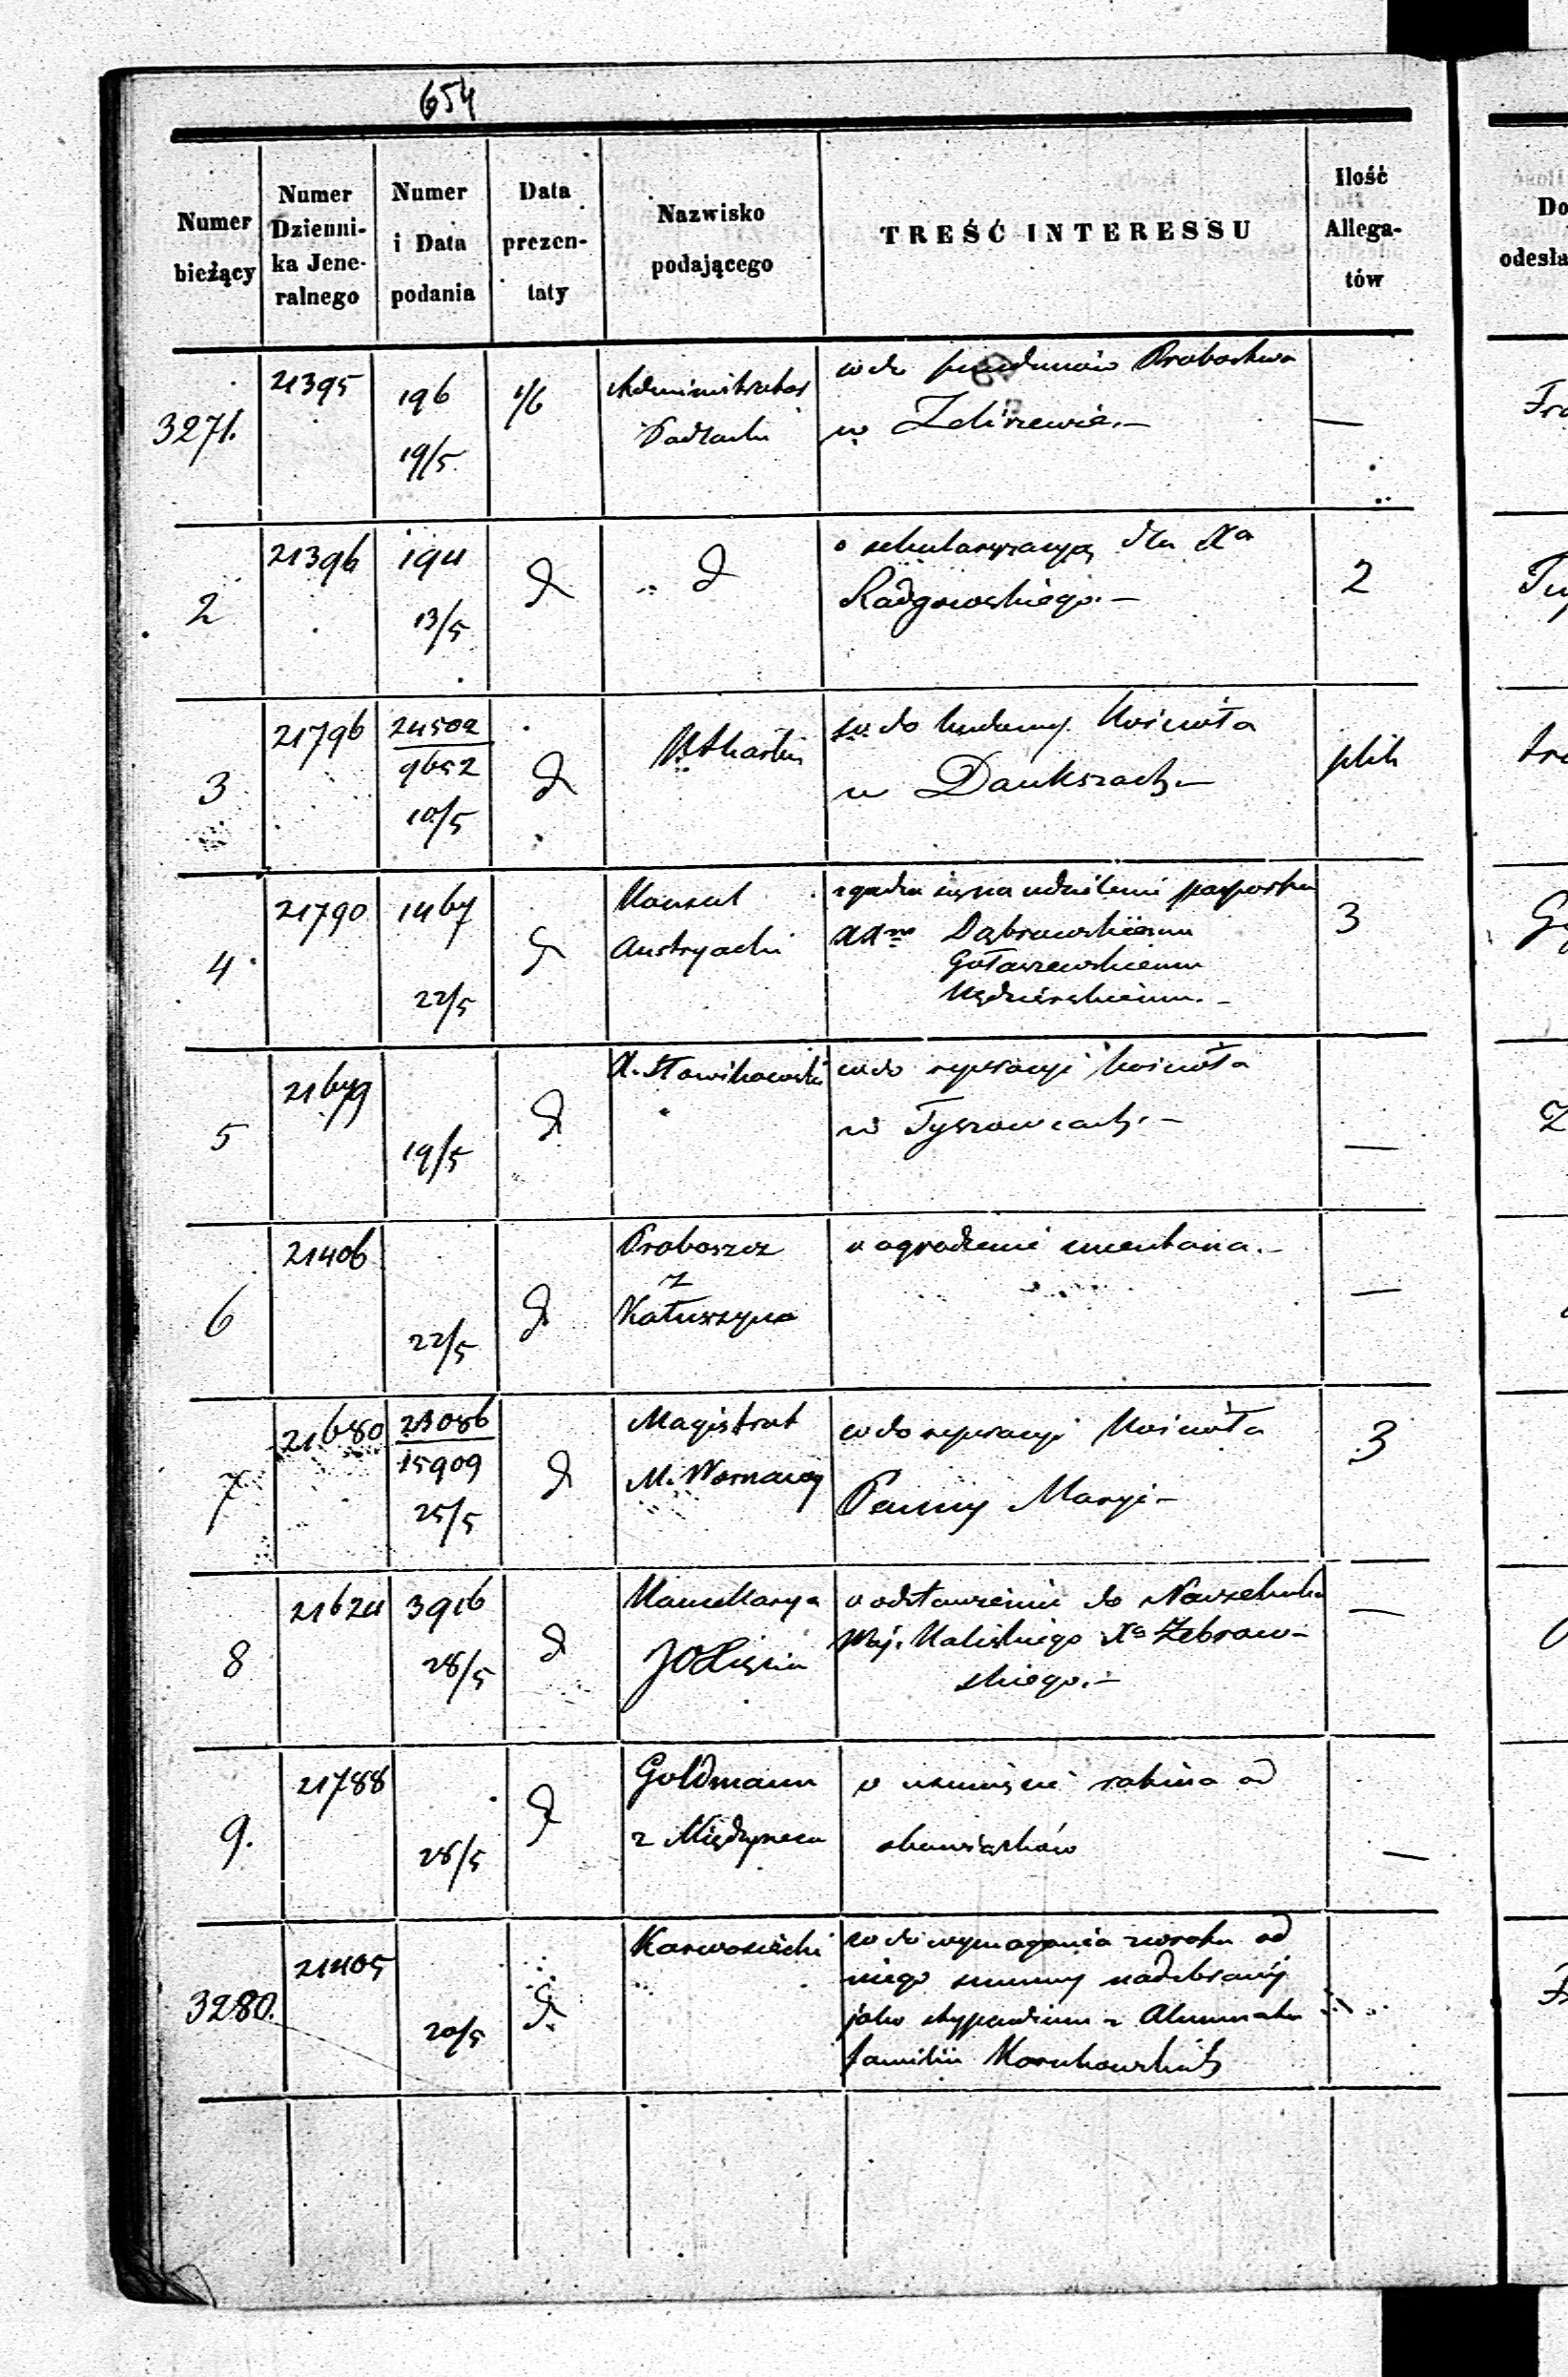 654
Numer bieżący | Numer Dzienni-ka Jene-ralnego | Numer i Data podania | Data prezen-taty | Nazwisko podającego | TREŚĆ INTERESSU | Ilość Allega-tów
3271. | 21395 | 196 19/5 | 1/6 | Administrator Podlaski | co do funduszów Probostwa
w Zeliszewie.— | —
2 | 21396 | 194 13/5 | d | d | o sekularyzacyą dla Xa
Radgowskiego.— | 2
3 | 21796 | 24502 9652 10/5 | d | co do budowy Kościoła
w Daukszach.— | plik
4 | 21790 | 1467 22/5 | d | Konsul Austryacki | zgadza się na udzielenie paszportu
XXm Dąbrowskiemu
Gołaszewskiemu
3
5 | 21679 | 19/5 | d | X. Sławikowski | co do reperacyi kościoła
w Tyszowcach.— | —
6 | 21406 | 22/5 | d | Proboszcz z Kałuszyna | o ogrodzenie cmentarza.— | —
7 | 21680 | 23086 15909 25/5 | d | Magistrat M. Warszawy | co do reperacyi Kościoła
Panny Maryi— | 3
8 | 21624 | 3916 28/5 | d | Kancellarya JO Xięcia | o odstawienie do Naczelnika
Woj. Kaliskiego Xa Żebrow-
skiego.— | —
9. | 21788 | 28/5 | d | Goldmann z Międzyrzeca | o usunięcie rabina od
obowiązków | —
3280. | 21405 | 20/5 | d | Karwosiecki | co do wymagania zwrotu od
niego summy nadebranej
jako stypendium z Alumnatu
familii
Do
odesła